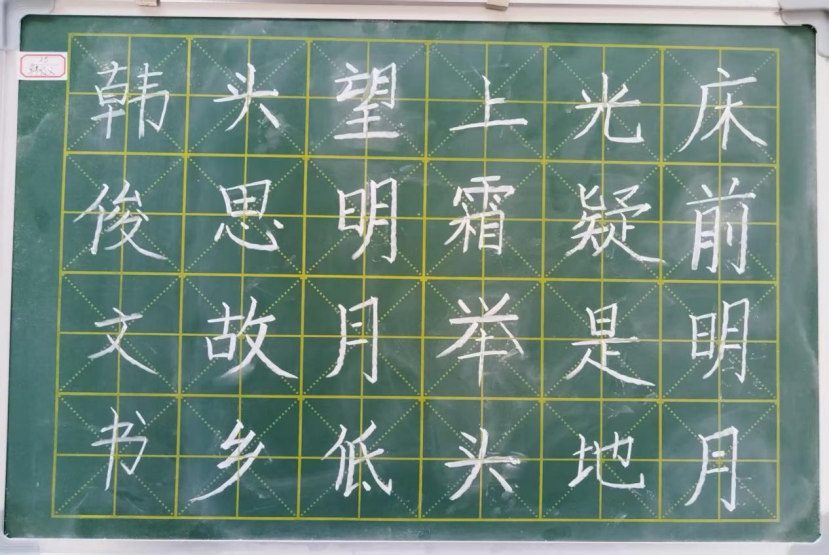 床前明月
光疑是地
上霜举头
望明月低
头思故乡
韩俊文书